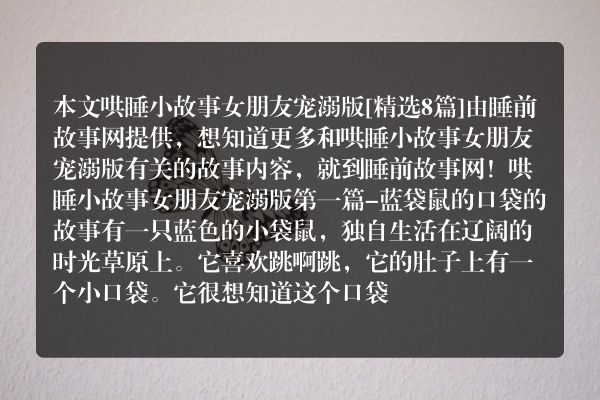 本文哄睡小故事女朋友宠溺版[精选8篇]由睡前
故事网提供，想知道更多和哄睡小故事女朋友
宠溺版有关的故事内容，就到睡前故事网！哄
睡小故事女朋友宠溺版第一篇-蓝袋鼠的口袋的
故事有一只蓝色的小袋鼠，独自生活在辽阔的
时光草原上。它喜欢跳啊跳，它的肚子上有一
个小口袋。它很想知道这个口袋